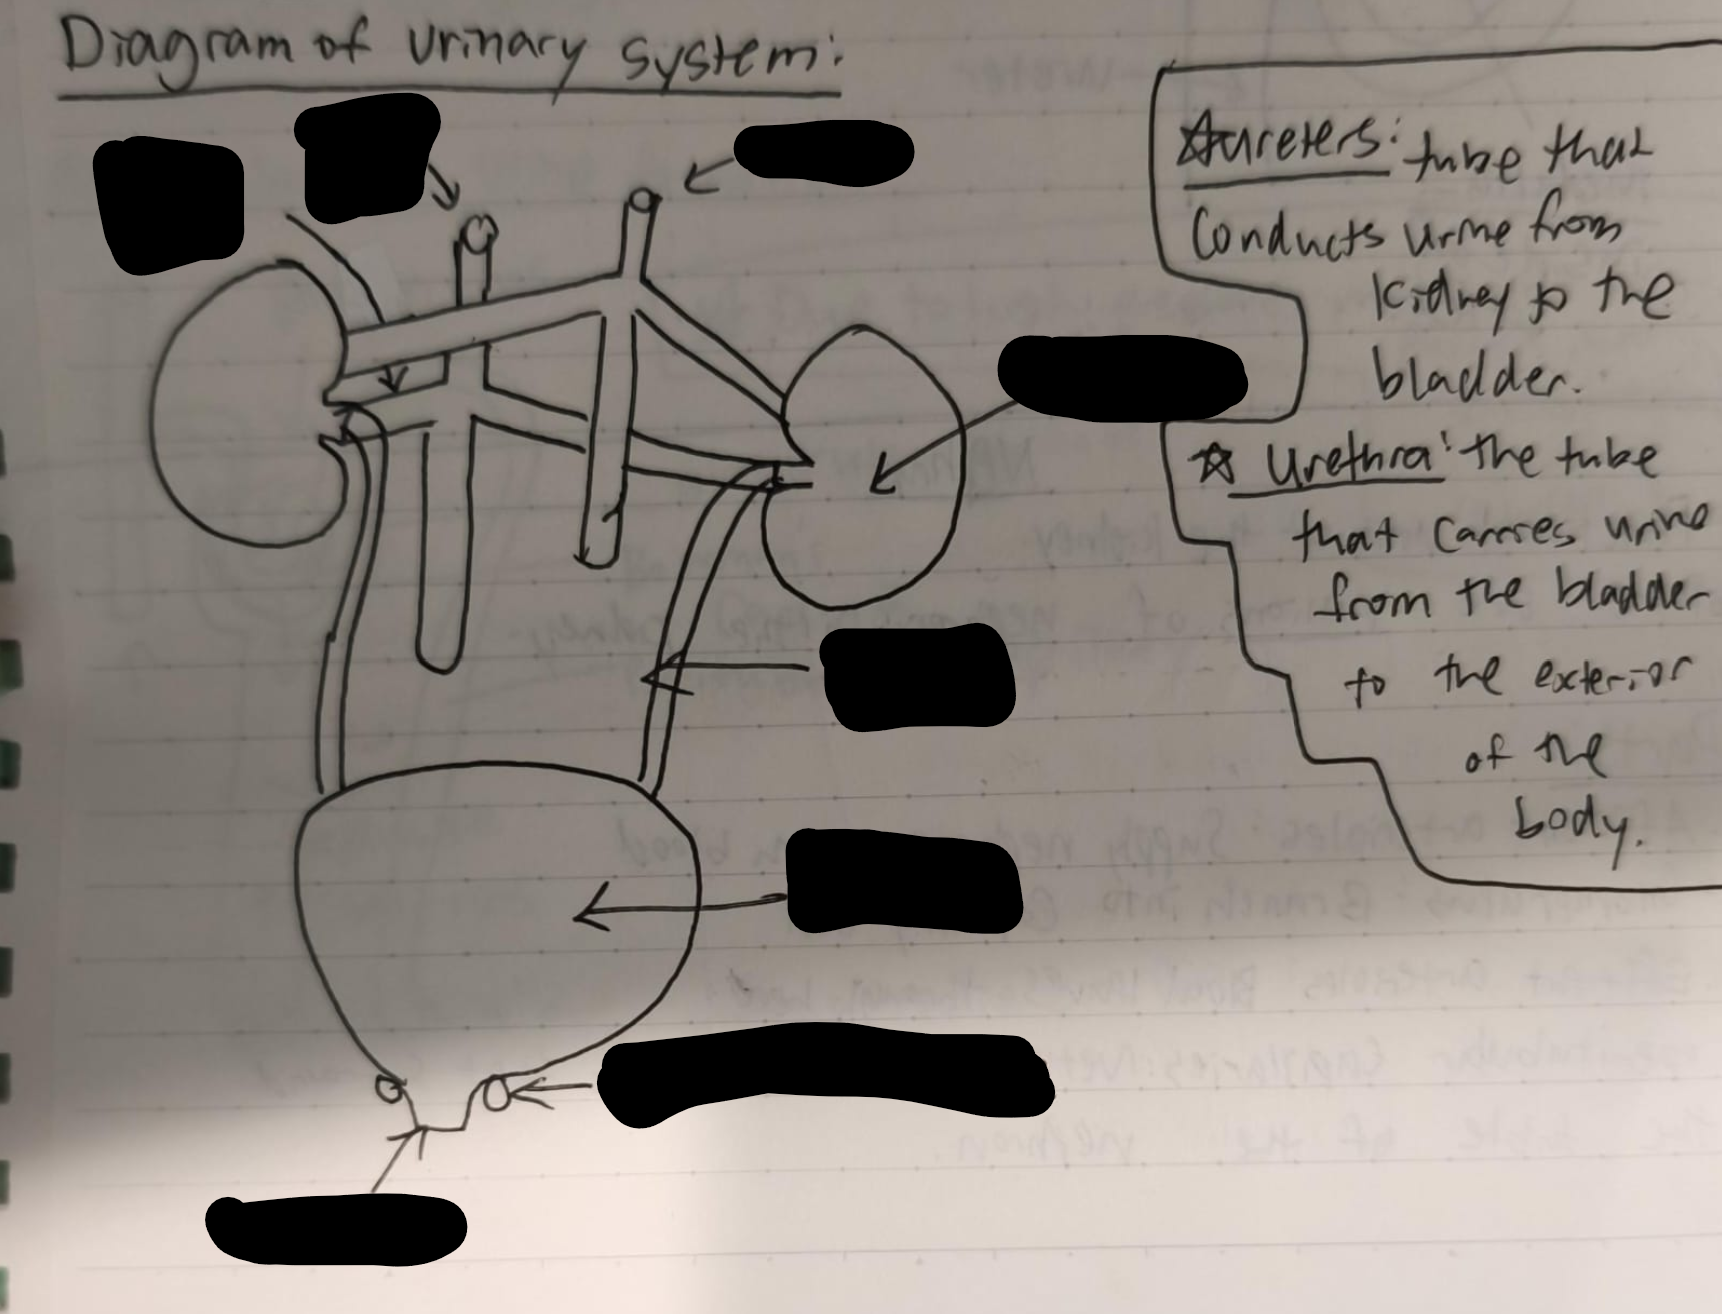 Diagram of urinary system:
☆ureters: tube that
conducts urine from
kidney to the
bladder.
☆ Urethra: the tube
that carries urine
from the bladder
to the exterior
of the
body.